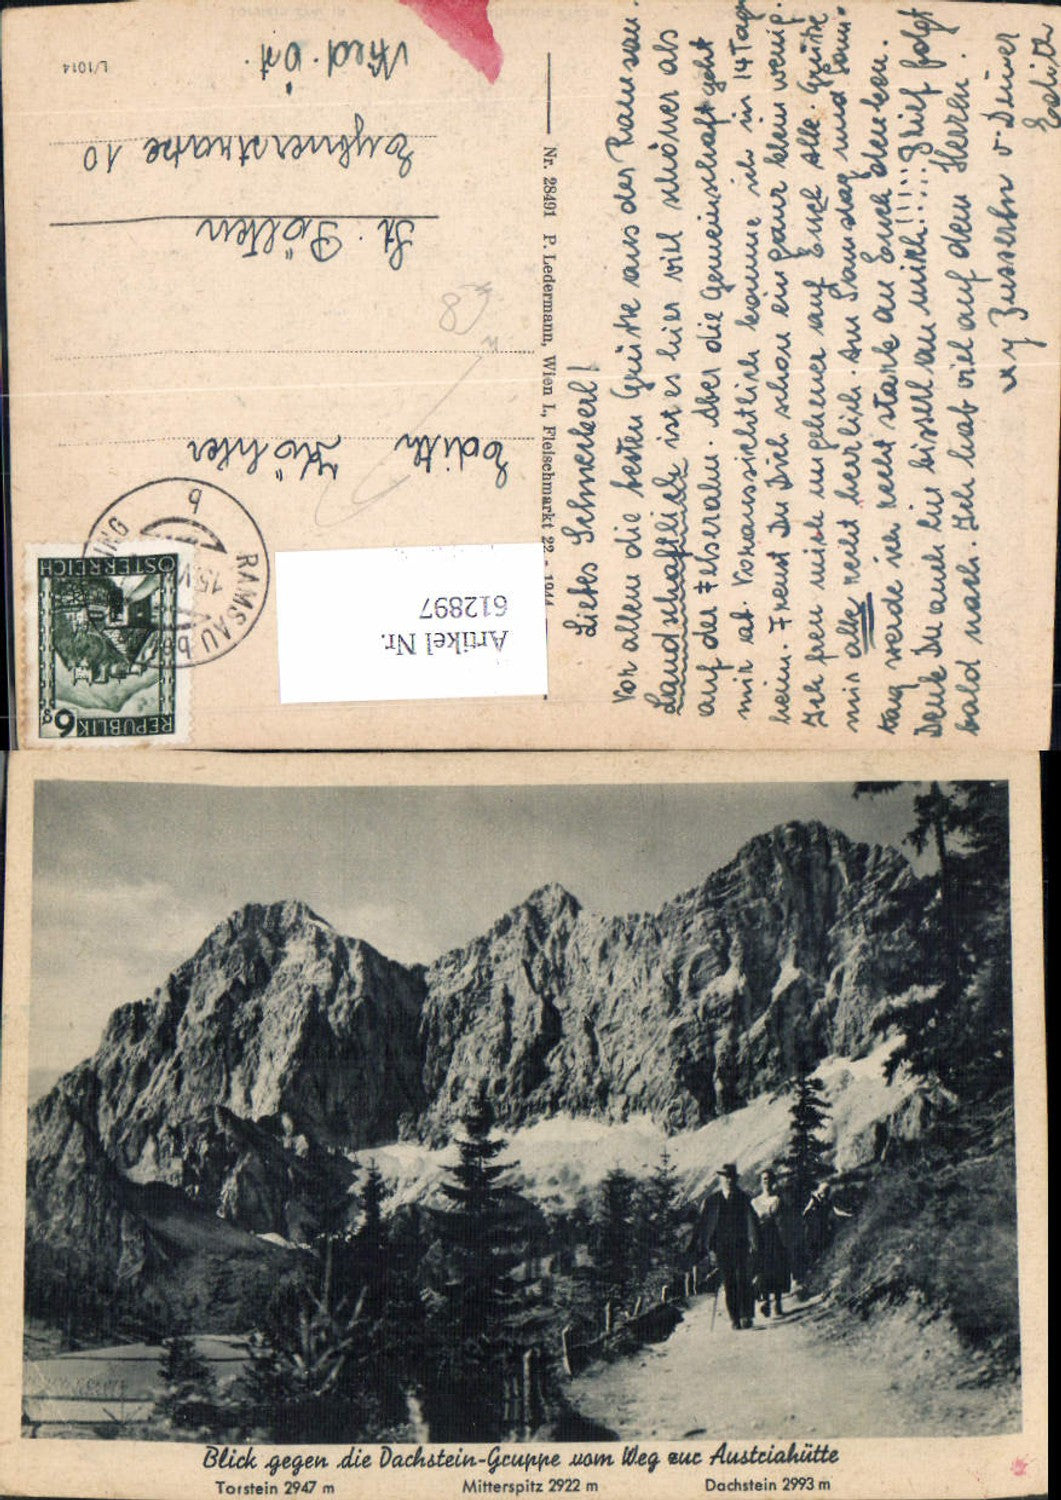 Liebes Schmerkerl!
Vor allem die besten Grüsse aus der Ramsau.
Landschaftlich ist es hier viel schöner als
auf der Elseralm. Aber die Gemeinschaft geht
mir ab. Voraussichtlich komme ich in 14 Tag
heim. Freust Du Dich schon ein ganz klein wenig.
Ich freu mich ungeheuer auf Euch alle. Grüsse
mir alle recht herzlich. Am Samstag und Sonn-
tag werde ich recht stark an Euch denken.
Denk Du auch ein bissell an mich!!!! Brief folgt
bald nach. Ich hab viel auf dem Herzen.
Edith
Nr. 28491 P. Ledermann, Wien I., Fleischmarkt 22 - 1944
Edith Köhler
St. Pölten
Eybnerstrasse 10
Nied. Öst.
L/1014
REPUBLIK
6g
ÖSTERREICH
RAMSAU
b
Artikel Nr.
612897
Blick gegen die Dachstein-Gruppe vom Weg zur Austriahütte
Torstein 2947 m Mitterspitz 2922 m Dachstein 2993 m